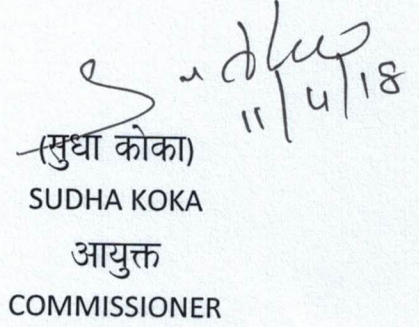 11/4/18
(सुधा कोका)
SUDHA KOKA
आयुक्त
COMMISSIONER